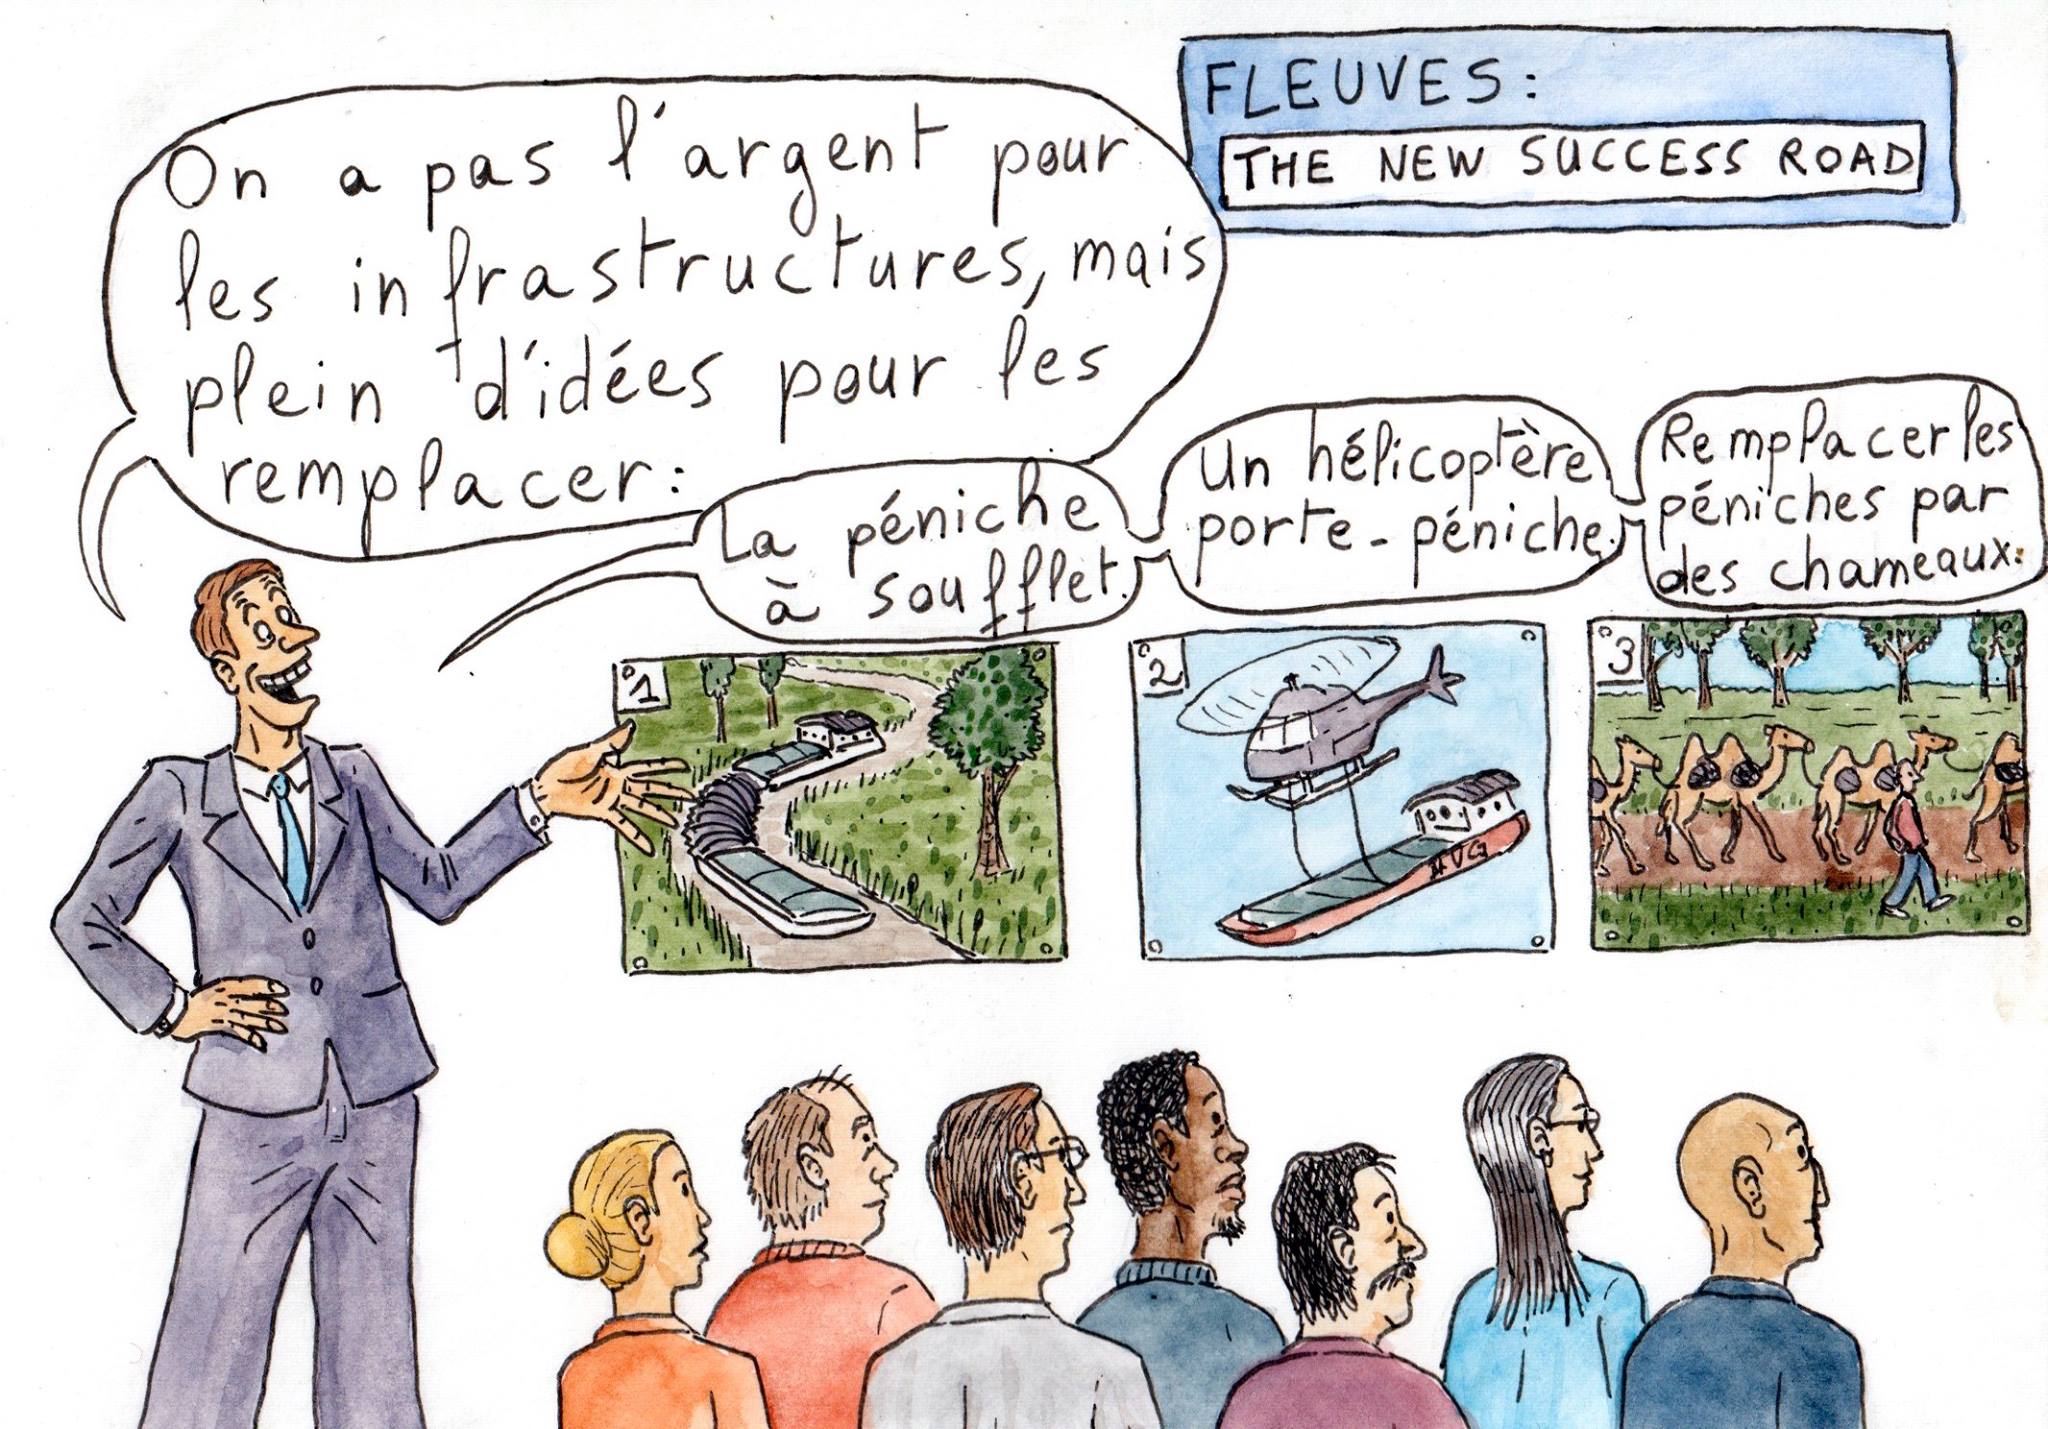 FLEUVES:
THE NEW SUCCESS ROAD
On a pas l'argent pour
les infrastructures, mais
plein d'idées pour les
remplacer:
La péniche
à soufflet.
Un hélicoptère
porte-péniche.
Remplacer les
péniches par
des chameaux.
1
2
3